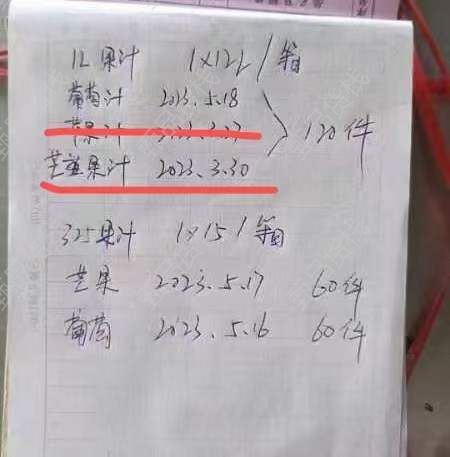 1L果汁 1X12L/箱
葡萄汁 2023.5.18
芒果汁
芒益果汁 2023.3.30
120件
325果汁 1X15/箱
芒果 2023.5.17 60件
葡萄 2023.5.16 60件